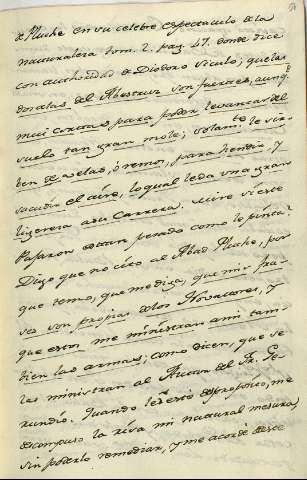 de Pluche en su celebre espectaculo de la
naturaleza tom. 2. pag. 47. donde dice
con authoridad de Diodoro Siculo; que las
dos alas del Abestruz son fuertes, aunq.e
mui cortas para poder levantar del
suelo tan gran mole; solam.te le sir
ben de velas, ò remos, para hendir, y
sacudir el aire, lo qual le da una gran
ligereza a su Carrera. mire si este
Pajaron es tan pesado como lo pinta?
Digo que no cito al Abad Pluche, por
que temo, que me diga, que mis fra-
ses son propias de los Novatores, y
que estos me ministran a mi tam-
bien las armas, como dicen, que se
las ministran al Autor del Fr. Ge-
rundio. Quando leì este desproposito, me
descompuso la risa mi natural mesura,
sin poderlo remediar, y me acordè de este